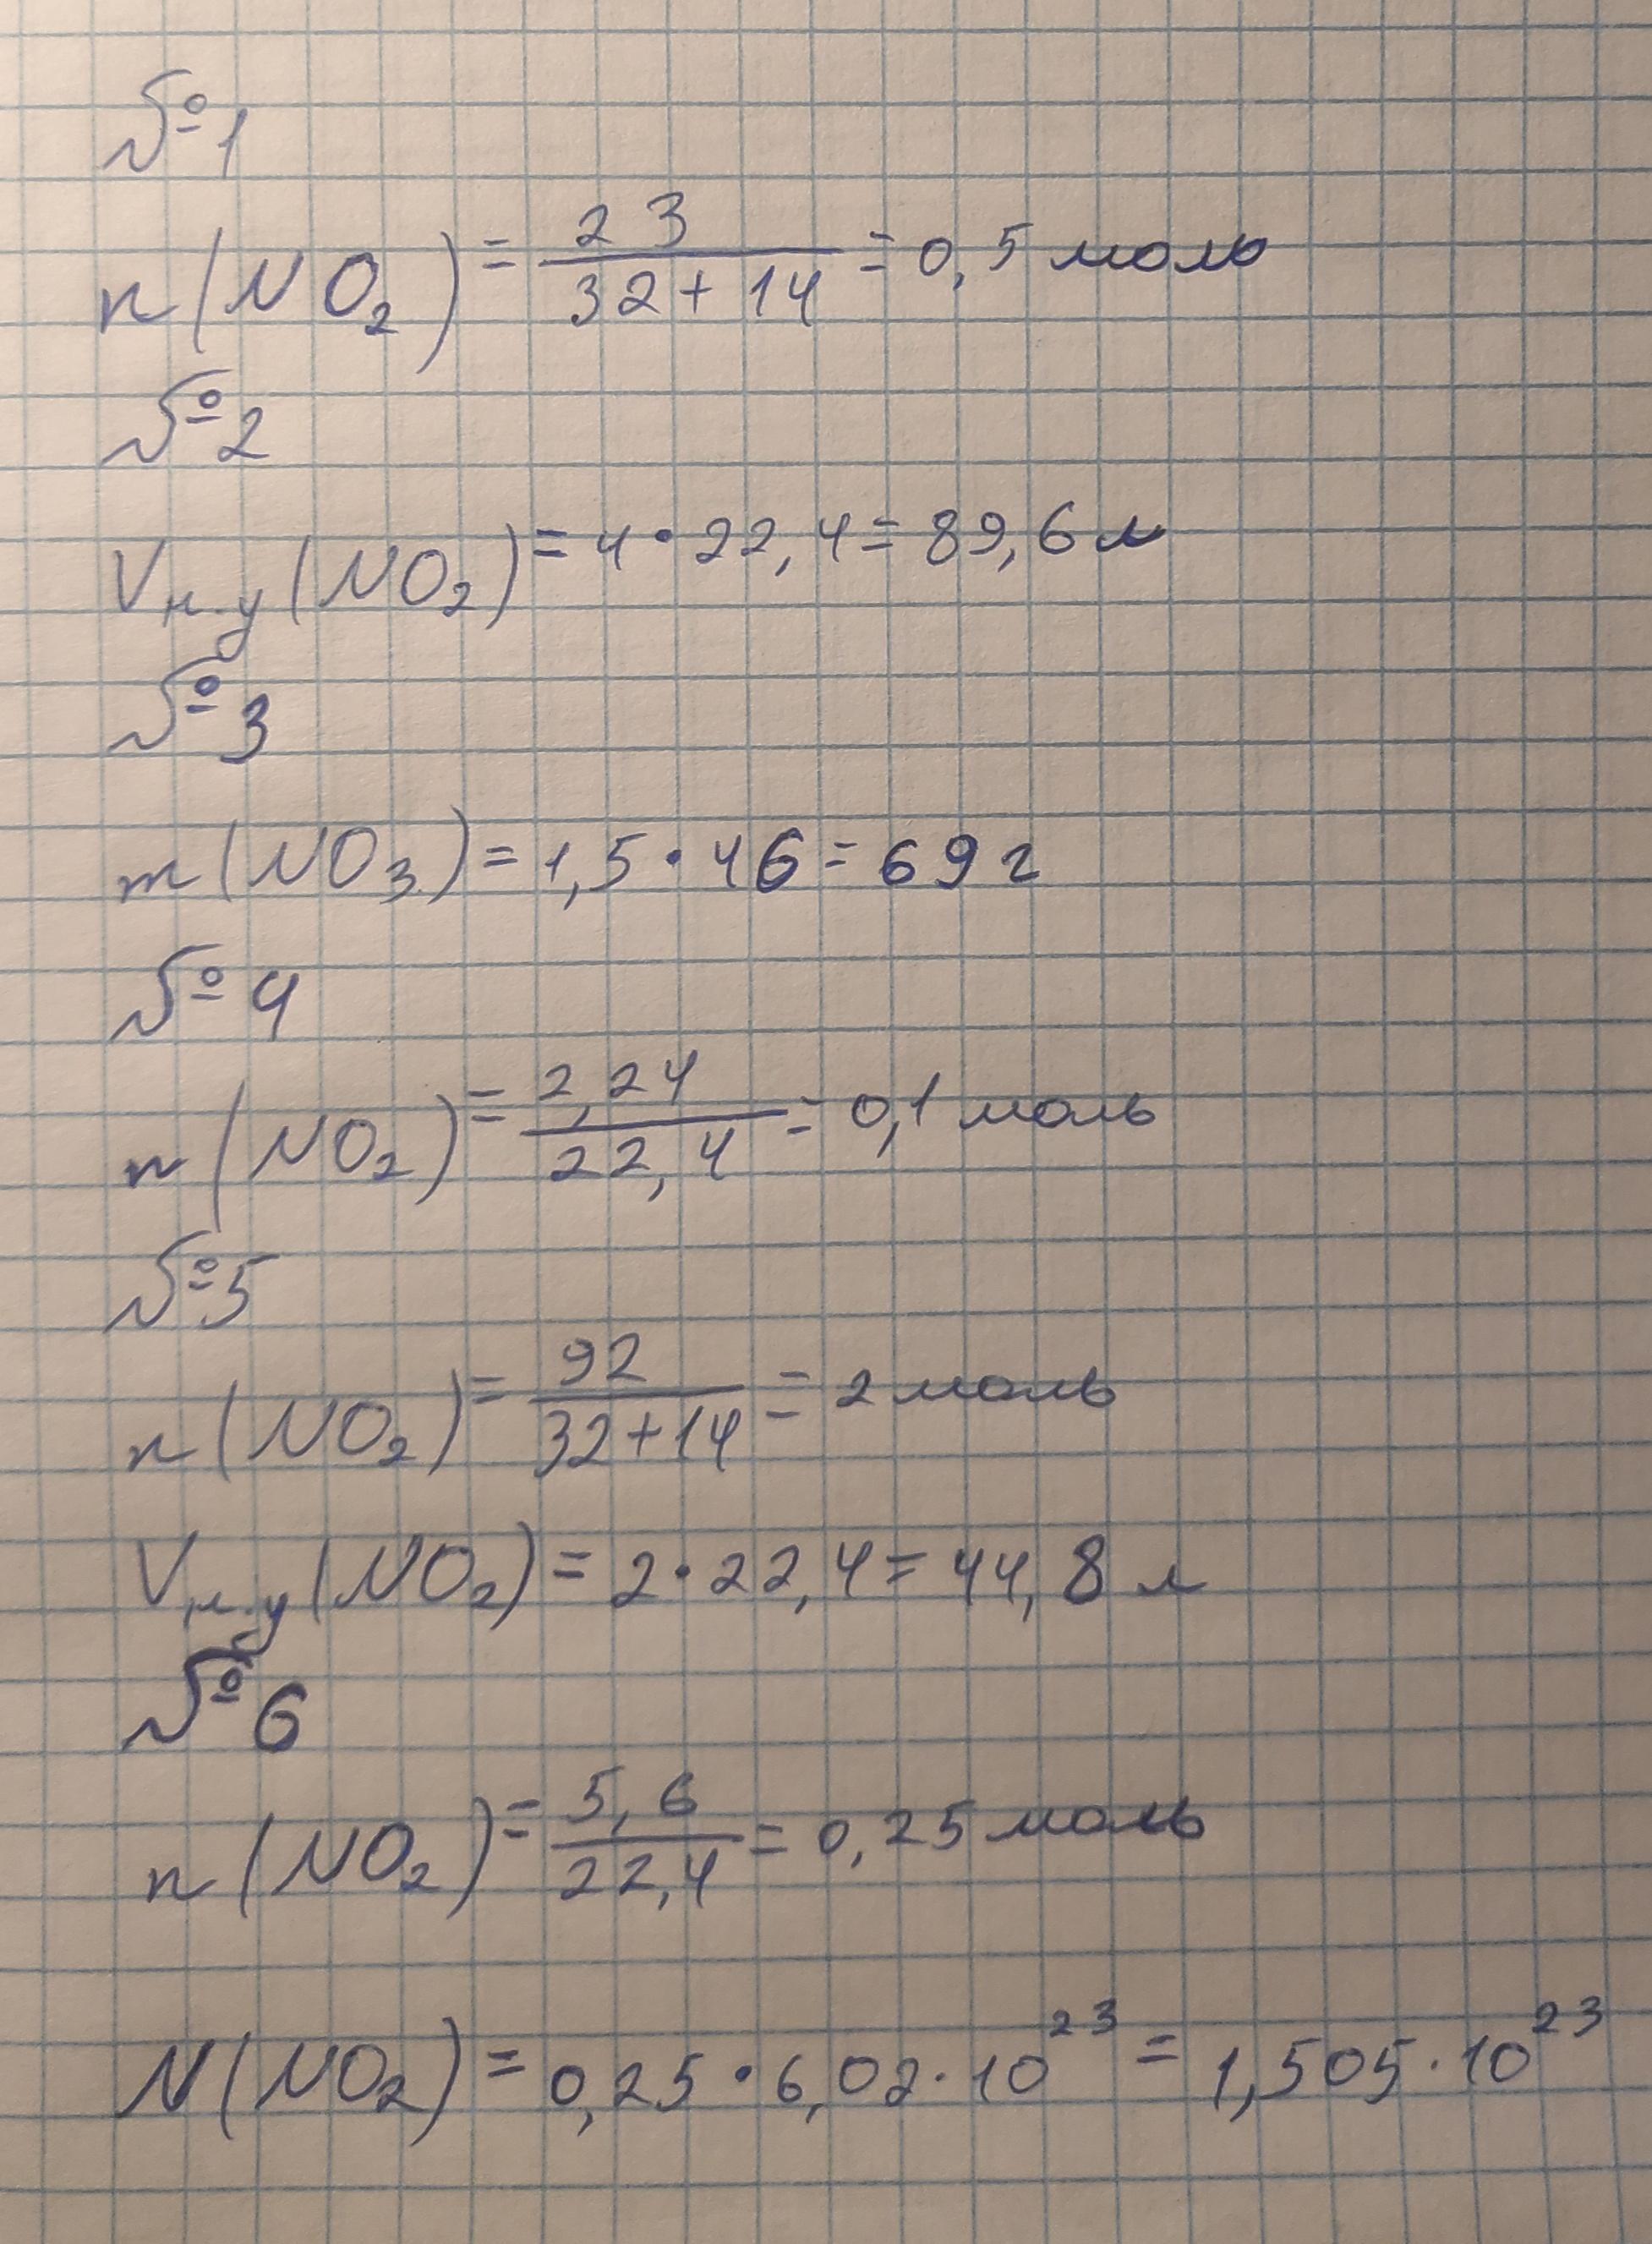 №1
n(NO₂) = 23/(32+14) = 0,5 моль
№2
Vн.у(NO₂) = 4·22,4 = 89,6 л
№3
m(NO₃) = 1,5·46 = 69 г
№4
n(NO₂) = 2,24/22,4 = 0,1 моль
№5
n(NO₂) = 92/(32+14) = 2 моль
Vн.у(NO₂) = 2·22,4 = 44,8 л
№6
n(NO₂) = 5,6/22,4 = 0,25 моль
N(NO₂) = 0,25·6,02·10²³ = 1,505·10²³